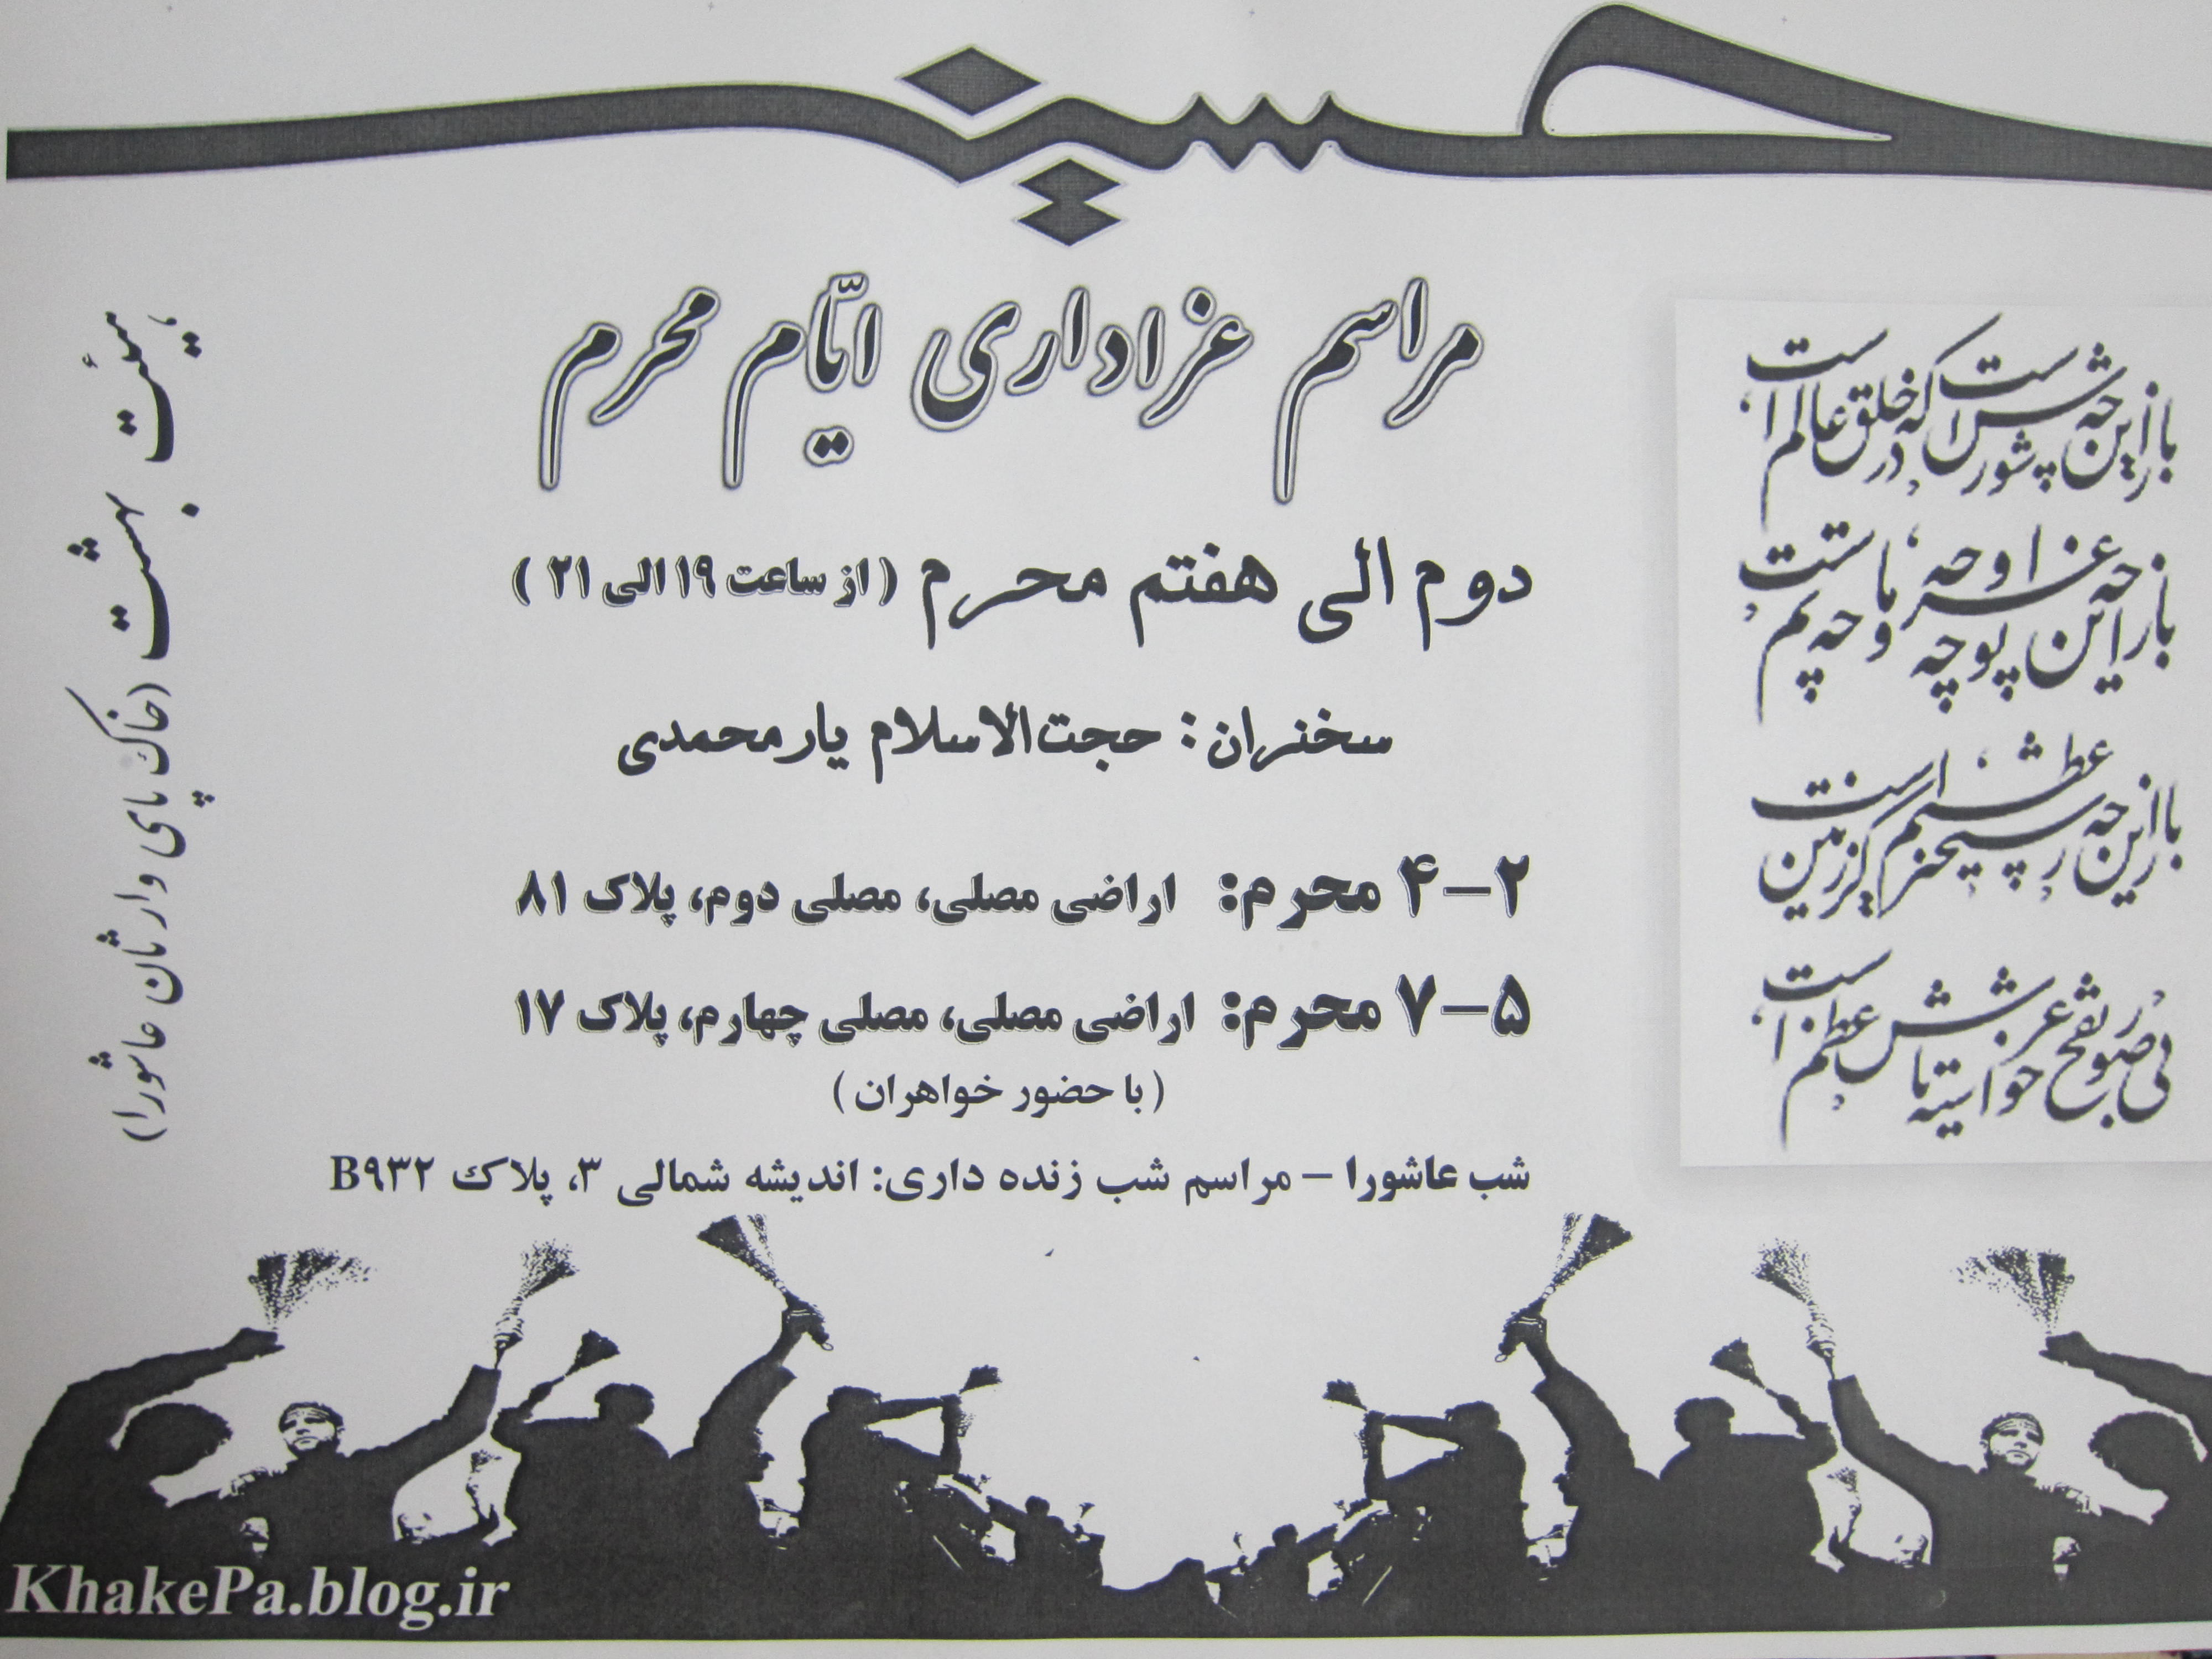 حسین
مراسم عزاداری ایّام محرم
دوم الی هفتم محرم (از ساعت ۱۹ الی ۲۱)
سخنران: حجت‌الاسلام یارمحمدی
۲–۴ محرم: اراضی مصلی، مصلی دوم، پلاک ۸۱
۵–۷ محرم: اراضی مصلی، مصلی چهارم، پلاک ۱۷
(با حضور خواهران)
شب عاشورا – مراسم شب زنده داری: اندیشه شمالی ۳، پلاک B۹۳۲
باز این چه شورش است که در خلق عالم است
باز این چه نوحه و چه عزا و چه ماتم است
باز این چه رستخیز عظیم است کز زمین
بی نفخ صور خواسته تا عرش اعظم است
هیئت بهشت (خاک پای وارثان عاشورا)
KhakePa.blog.ir